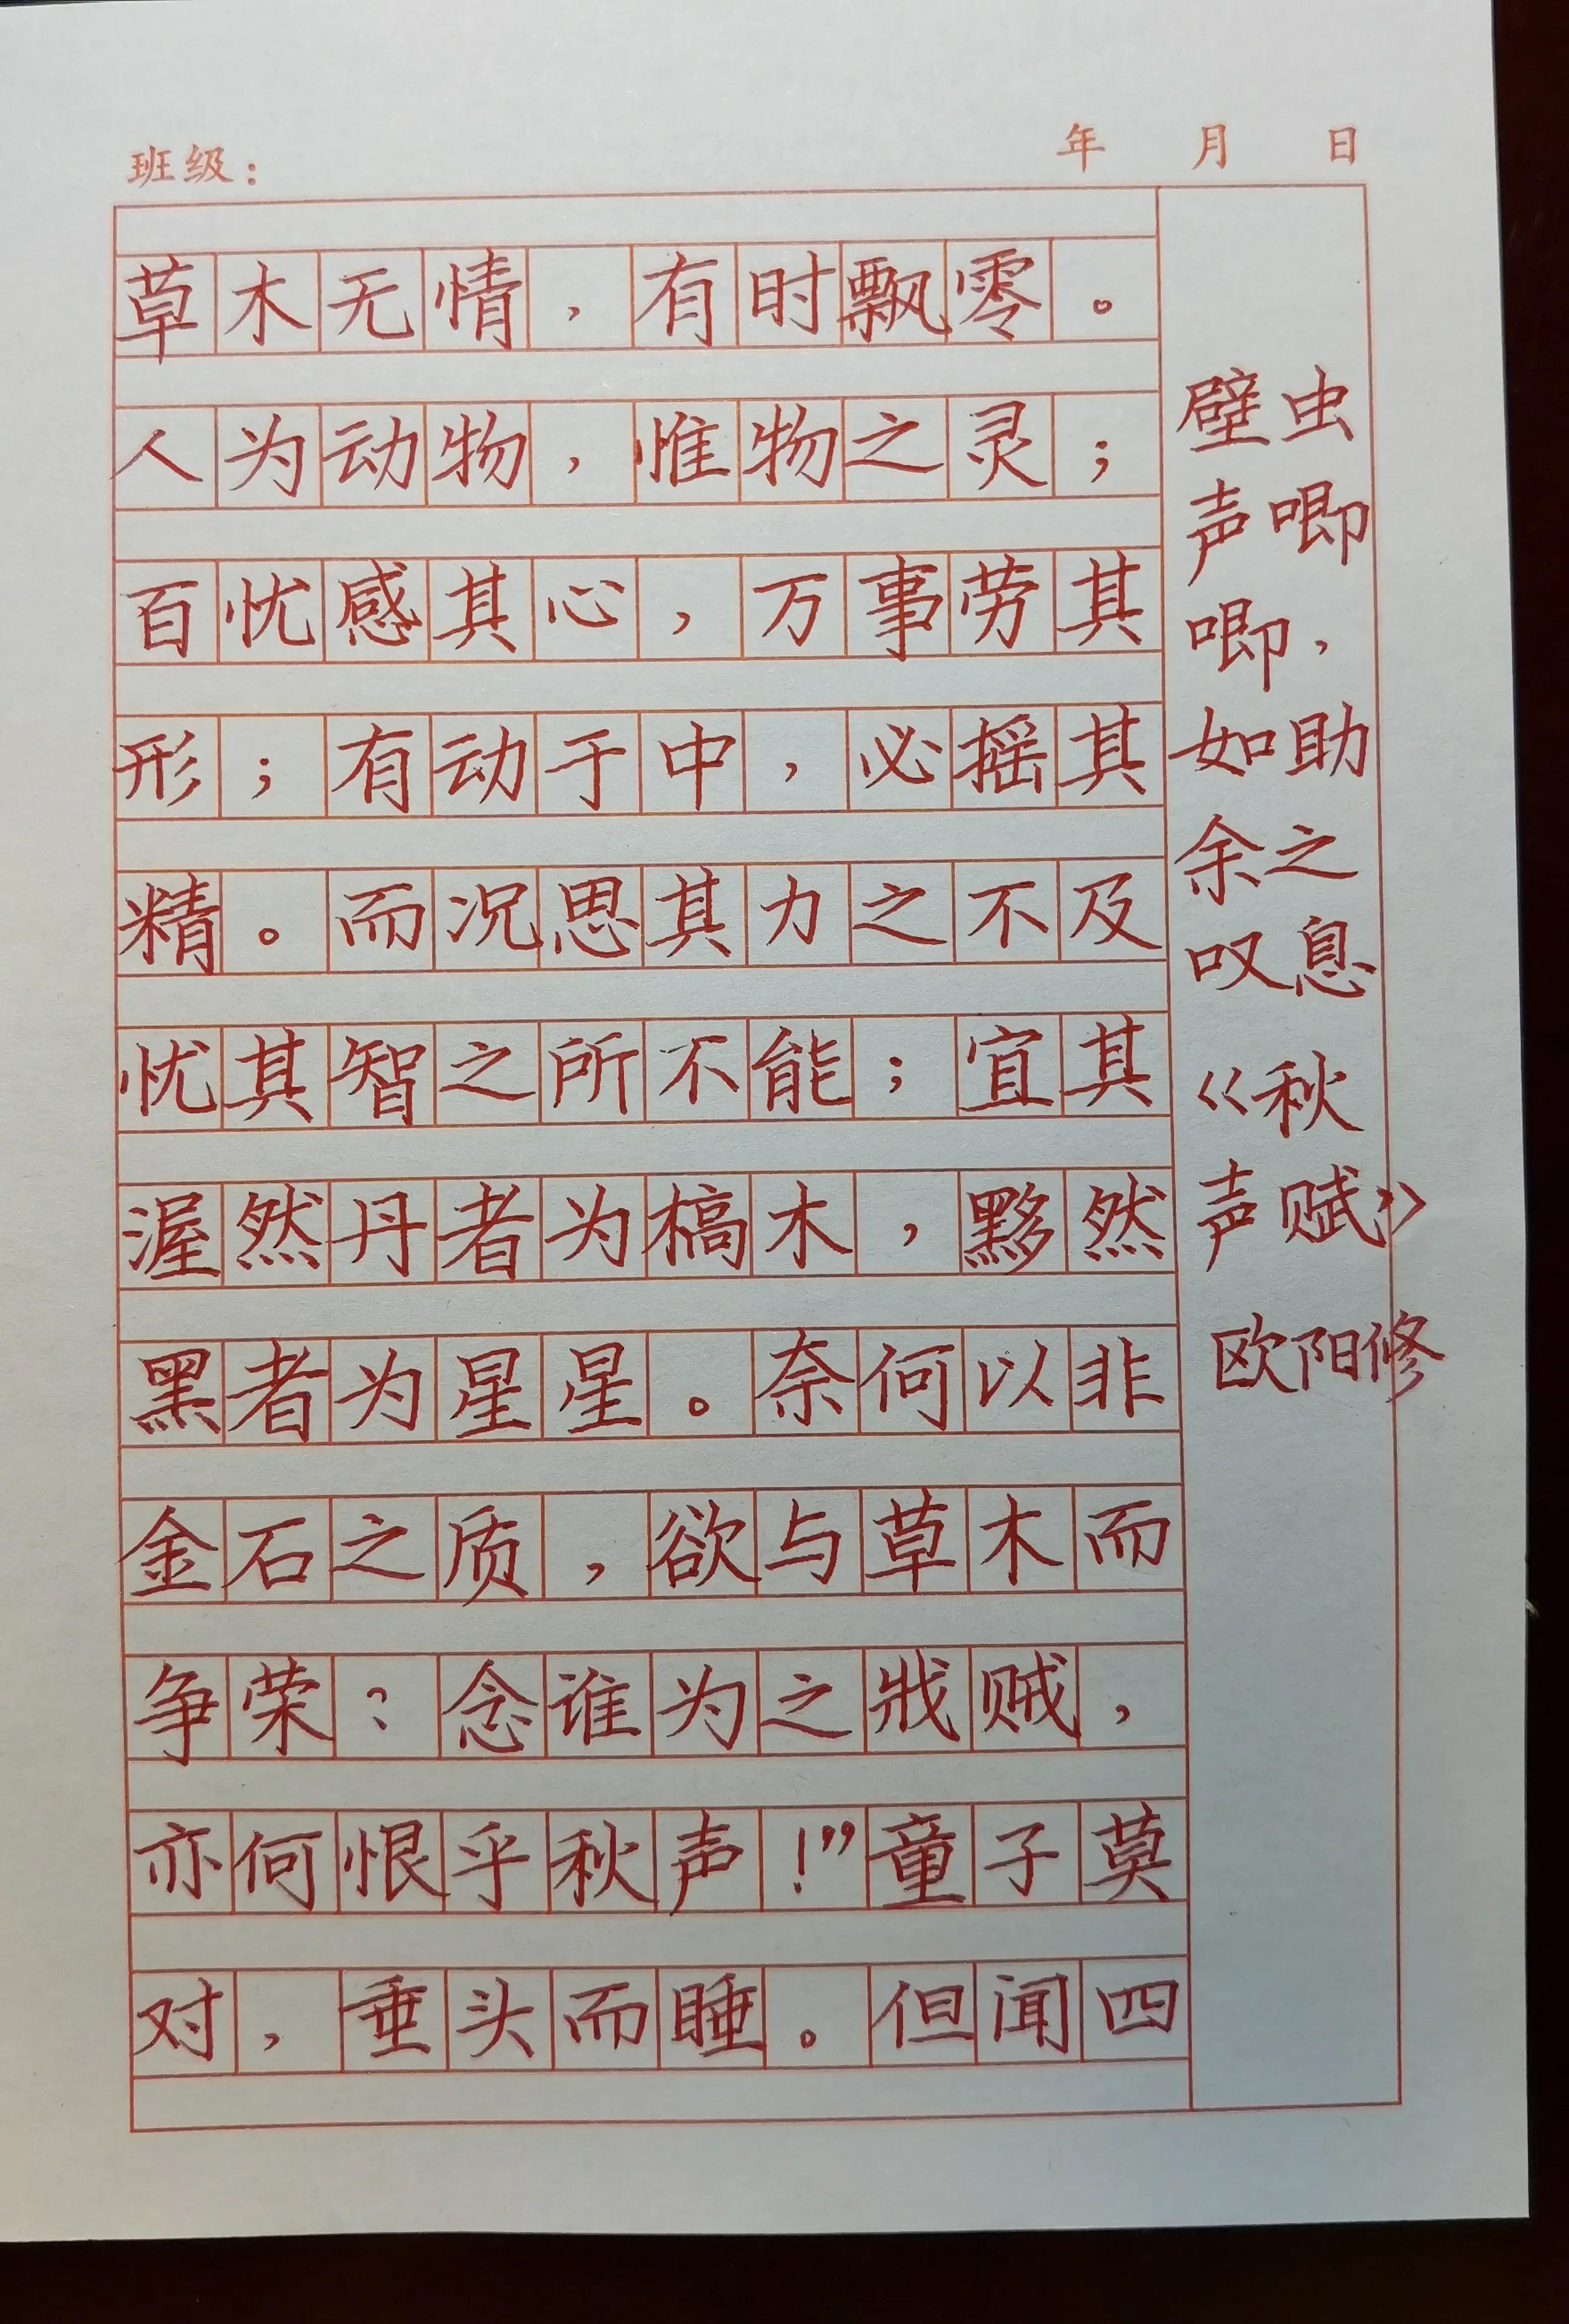 班级:
年 月 日
草木无情，有时飘零。
人为动物，惟物之灵；
百忧感其心，万事劳其
形；有动于中，必摇其
精。而况思其力之不及
忧其智之所不能；宜其
渥然丹者为槁木，黟然
黑者为星星。奈何以非
金石之质，欲与草木而
争荣？念谁为之戕贼，
亦何恨乎秋声！”童子莫
对，垂头而睡。但闻四
壁虫
声唧
唧，
如助
余之
叹息
《秋
声赋》
欧阳修